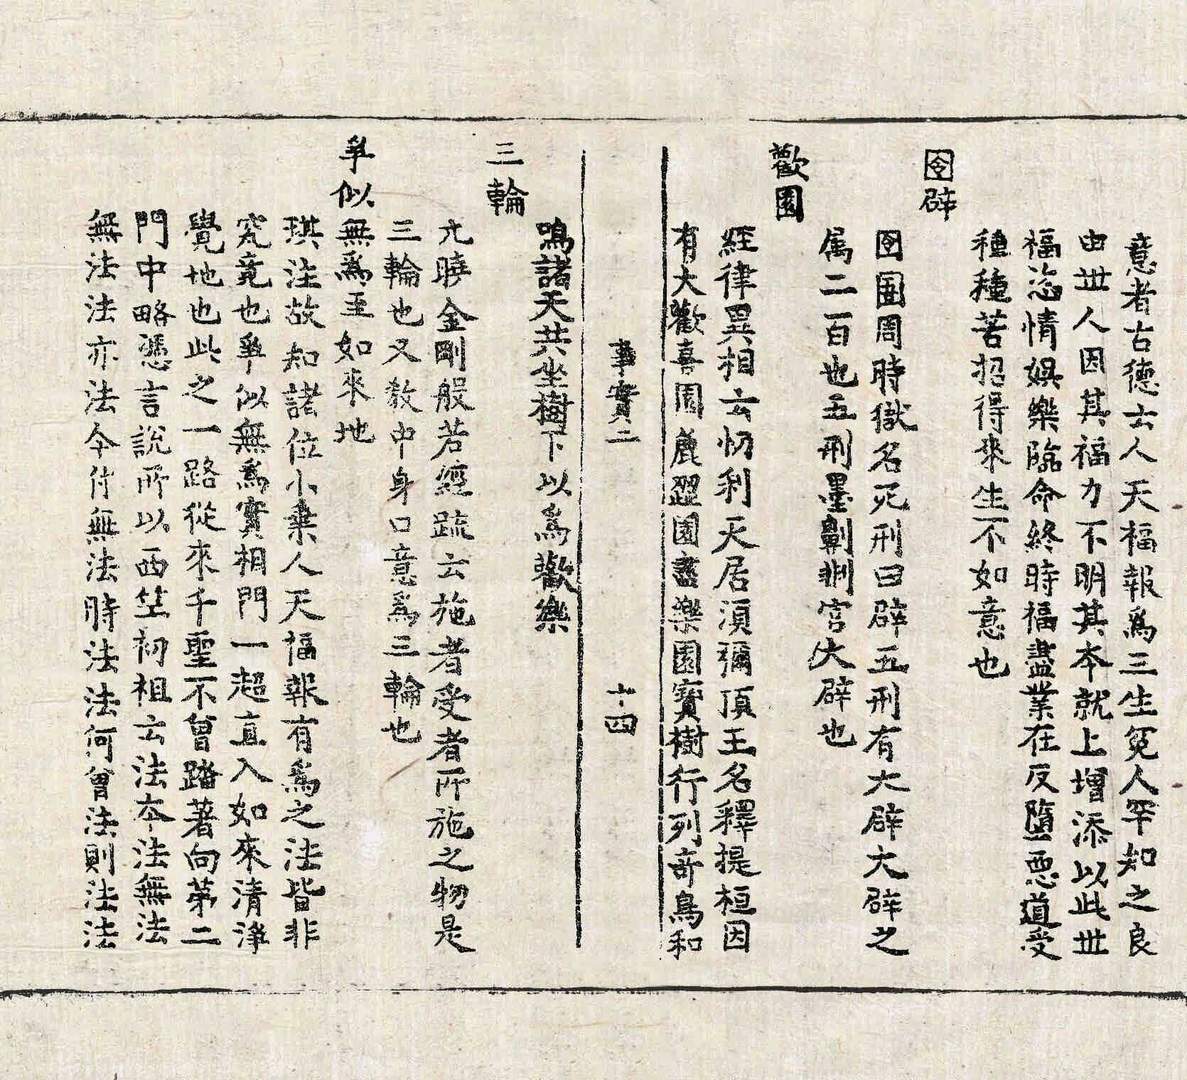 意者古德云人天福報爲三生冤人罕知之良
由世人因其福力不明其本就上增添以此世
福恣情娯樂臨命終時福盡業在反墮惡道受
種種苦招得來生不如意也
囹辟
囹圄周時獄名死刑曰辟五刑有大辟大辟之
属二百也五刑墨劓剕宮大辟也
歡園
經律異相云忉利天居湏彌頂王名釋提桓因
有大歡喜園麁澀園盡樂園寳樹行列奇鳥和
事實二 十四
鳴諸天共坐樹下以爲歡樂
三輪
亢曉金剛般若經䟽云施者受者所施之物是
三輪也又教中身口意爲三輪也
爭似無爲至如來地
琪注故知諸位小乗人天福報有爲之法皆非
究竟也爭似無爲實相門一超直入如來清淨
覺地也此之一路從來千聖不曾踏著向第二
門中略憑言說所以西竺初祖云法本法無法
無法法亦法今付無法時法法何曾法則法法